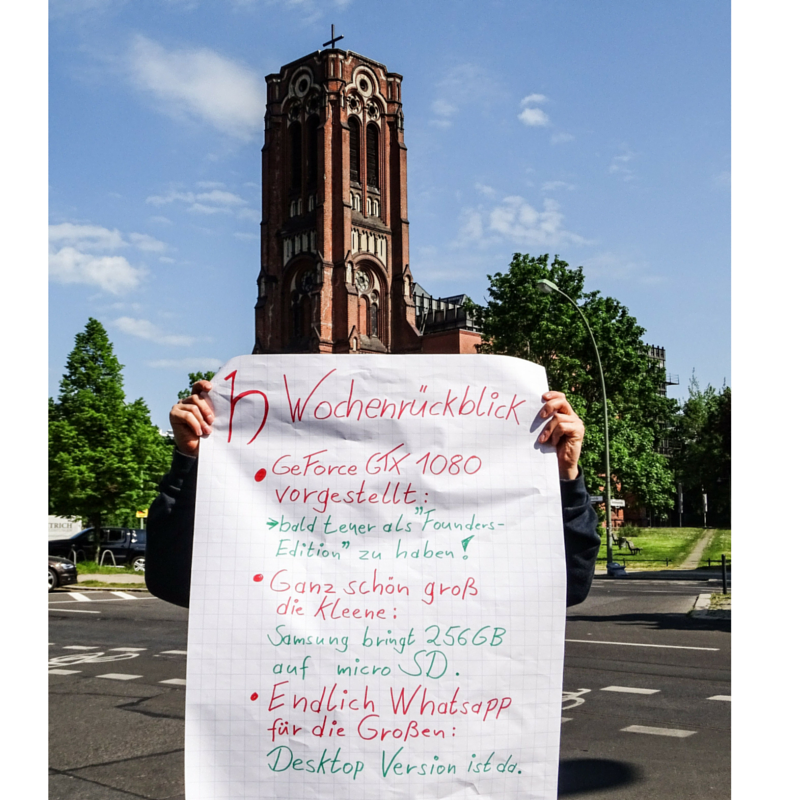 h Wochenrückblick
• GeForce GTX 1080
vorgestellt:
→bald teuer als "Founders-
Edition" zu haben!
• Ganz schön groß
die Kleene:
Samsung bringt 256GB
auf micro SD.
• Endlich Whatsapp
für die Großen:
Desktop Version ist da.
TRICH